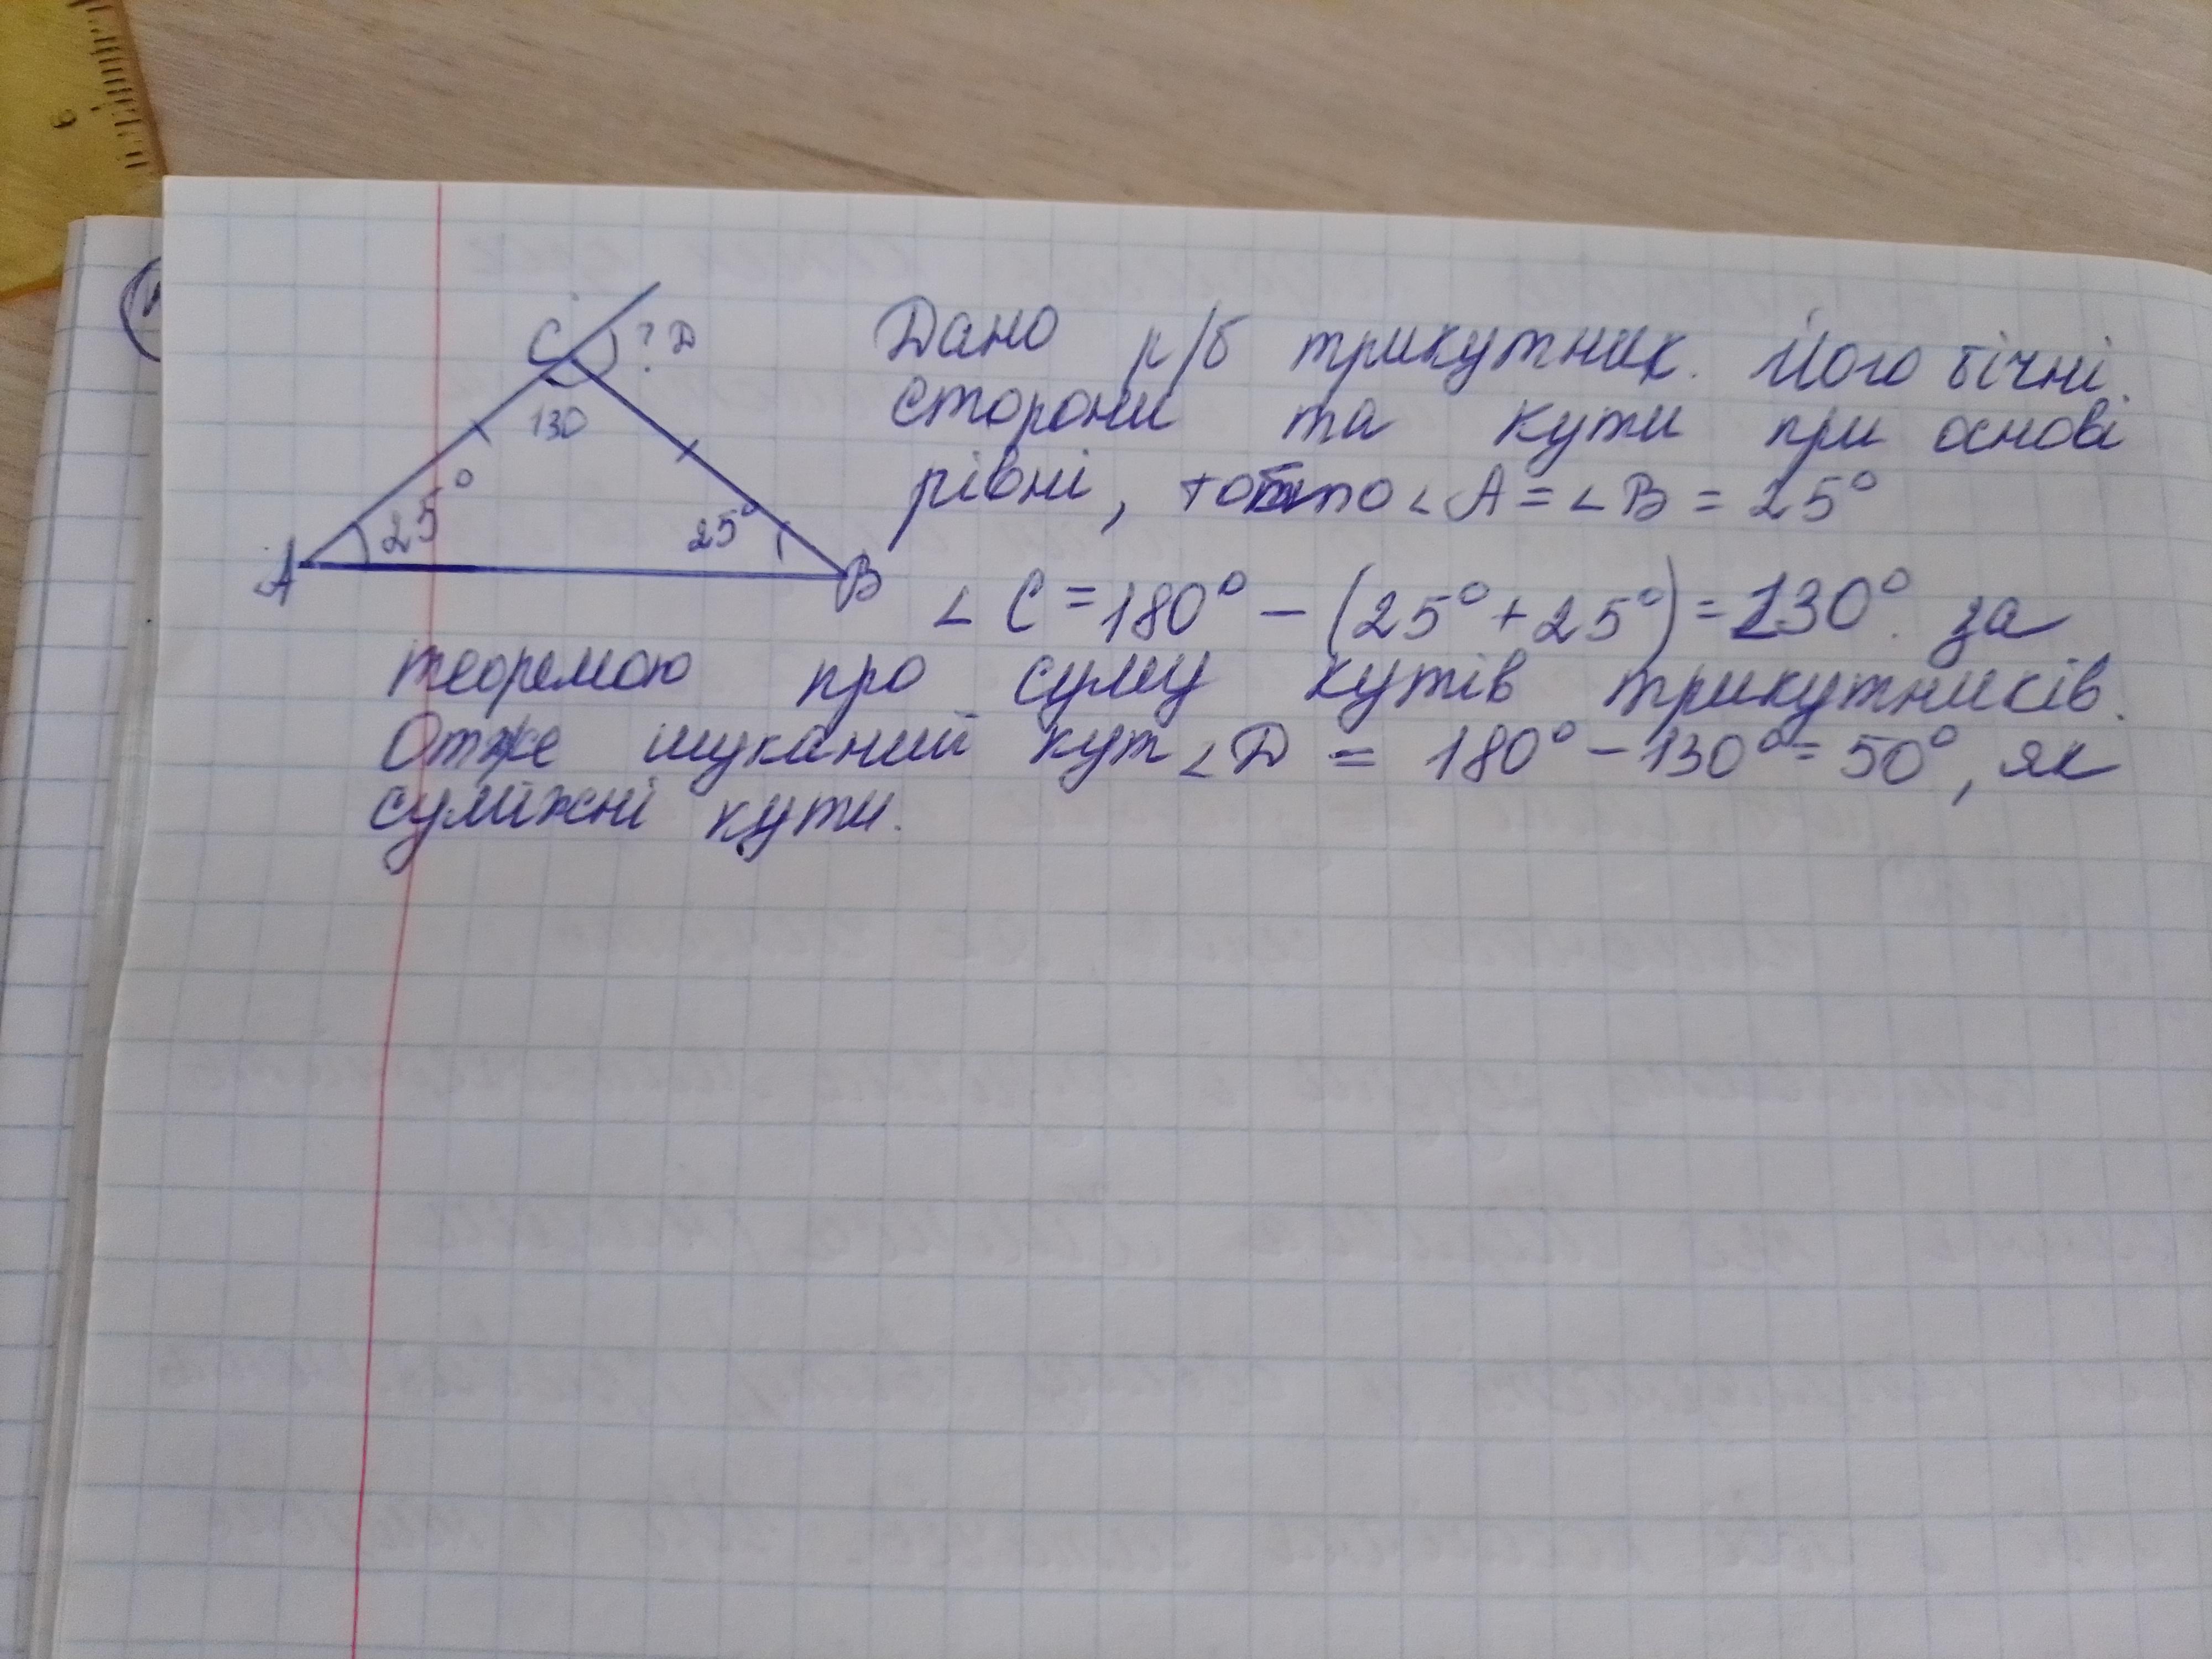 6
C ? D
130
25°
25°
A
B
Дано р/б трикутник. Його бічні
сторони та кути при основі
рівні, тобто ∠A = ∠B = 25°
∠C = 180° – (25° + 25°) = 130°. за
теоремою про суму кутів трикутників.
Отже шуканий кут ∠D = 180° – 130° = 50°, як
суміжні кути.